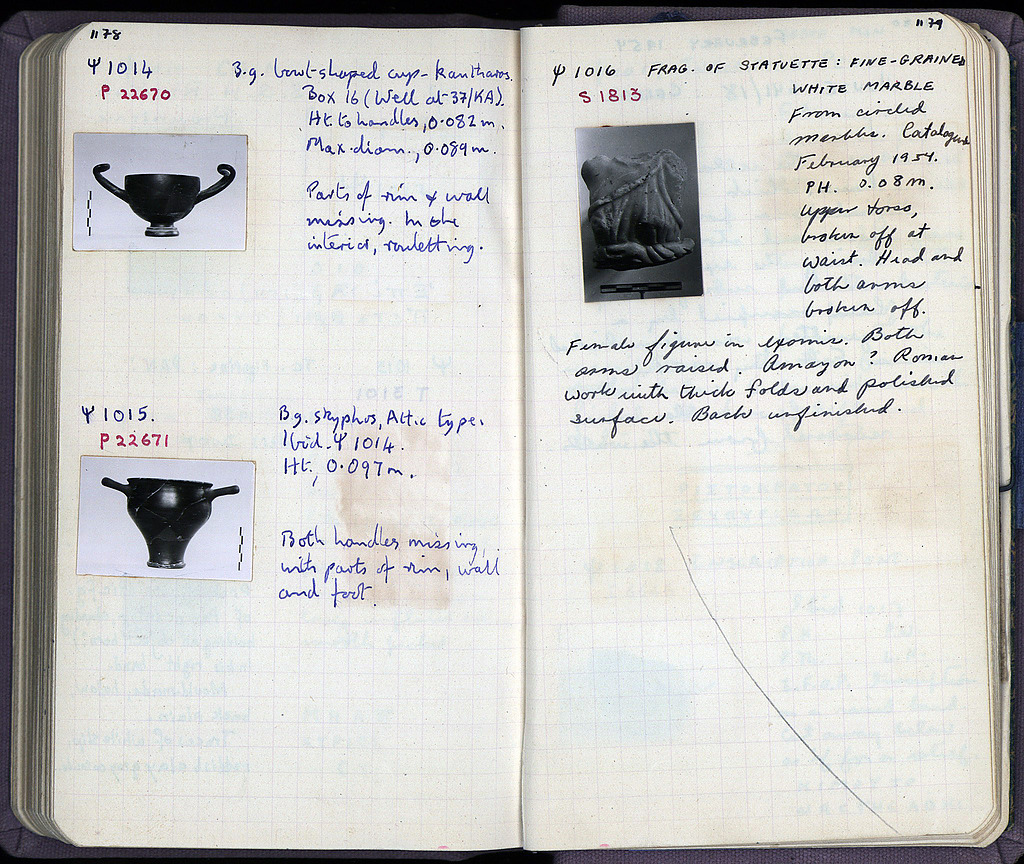 1178
Ψ 1014
P 22670
B.g. bowl-shaped cup - kantharos.
Box 16 (Well at 37/KA).
Ht. to handles, 0.082 m.
Max. diam., 0.089 m.
Parts of rim & wall
missing. In the
interior, rouletting.
Ψ 1015.
P 22671
B.g. skyphos, Attic type.
Ibid. Ψ 1014.
Ht., 0.097 m.
Both handles missing,
with parts of rim, wall
and foot.
1179
Ψ 1016 FRAG. OF STATUETTE: FINE-GRAINED
S 1813
WHITE MARBLE
From circled
marbles. Catalogued
February 1954.
PH. 0.08 m.
Upper torso,
broken off at
waist. Head and
both arms
broken off.
Female figure in exomis. Both
arms raised. Amazon? Roman
work with thick folds and polished
surface. Back unfinished.